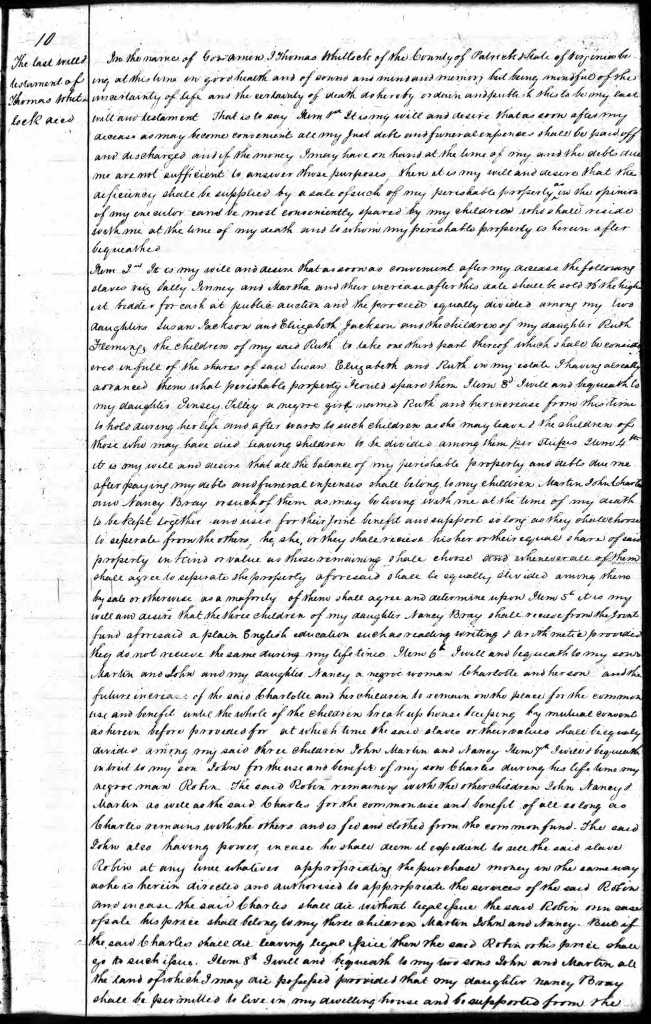 10
The last will &
testament of
Thomas Whit
lock decd
In the name of God amen I Thomas Whitlock of the County of Patrick & State of Virginia be
ing at this time in good health and of sound and mind and memory but being mindful of the
uncertainty of life and the certainty of death do hereby ordain and publish this to be my last
will and testament That is to say Item 1st It is my will and desire that as soon after my
decease as may become convenient all my Just debts and funeral expenses shall be paid off
and discharged and if the money I may have on hand at the time of my and the debts due
me are not sufficient to answer those purposes, then it is my will and desire that the
deficiency shall be supplied by a sale of such of my perishable property as in the opinion
of my executor can be most conveniently spared by my children who shall reside
with me at the time of my death and to whom my perishable property is herein after
bequeathed
Item 2nd It is my will and desire that as soon as convenient after my decease the following
slaves viz Sally Jinney and Martha and their increase after this date shall be sold to the high
est bidder for cash at public auction and the proceeds equally divided among my two
daughters Susan Jackson and Elizabeth Jackson and the children of my daughter Ruth
Fleming, the children of my said Ruth to take one third part thereof which shall be consid
ered in full of the shares of said Susan Elizabeth and Ruth in my estate I having already
advanced them what perishable property I could spare them Item 3d I will and bequeath to
my daughter Tilley a negroe girl named Ruth and her increase from this time
to hold during her life and after wards to such children as she may leave & the children of
those who may have died leaving children to be divided among them per Stirpes Item 4th
it is my will and desire that all the balance of my perishable property and debts due me
after paying my debts and funeral expenses shall belong to my children Martin John Charles
and Nancy Bray or such of them as may be living with me at the time of my death
to be kept together and used for their Joint benefit and support so long as they shall choose
to seperate from the others, he, she, or they shall recieve his her or their equal share of said
property in Kind or value as those remaining shall choose and whenever all of them
shall agree to seperate the property aforesaid shall be equally divided among them
by sale or otherwise as a majority of them shall agree and determine upon Item 5th it is my
will and desire that the three children of my daughter Nancy Bray shall recieve from the Joint
fund aforesaid a plain English education such as reading writing & arithmetic provided
they do not recieve the same during my life time. Item 6th I will and bequeath to my sons
Martin and John and my daughter Nancy a negroe woman Charlotte and her son and the
future increase of the said Charlotte and her children to remain on the place for the common
use and benefit until the whole of the children break up house keeping by mutual consent
as herein before provided for at which time the said slaves or their values shall be equaly
divided among my said three children John Martin and Nancy Item 7th I will & bequeath
in trust to my son John for the use and benefit of my son Charles during his life time my
negroe man Robin. The said Robin remaining with the other children John Nancy &
Martin as well as the said Charles for the common use and benefit of all so long as
Charles remains with the others and is fed and clothed from the common fund. The said
John also having power, in case he shall deem it expedient to sell the said slave
Robin at any time whatever appropriating the purchase money in the same way
as he is herein directed and authorised to appropriate the services of the said Robin
and in case the said Charles shall die without legal issue the said Robin or in case
of sale his price shall belong to my three children Martin John and Nancy. But if
the said Charles shall die leaving legal issue then the said Robin or his price shall
go to such issue. Item 8th I will and bequeath to my two sons John and Martin all
the land of which I may die possessed provided that my daughter nancy Bray
shall be permitted to live in my dwelling house and be supported from the